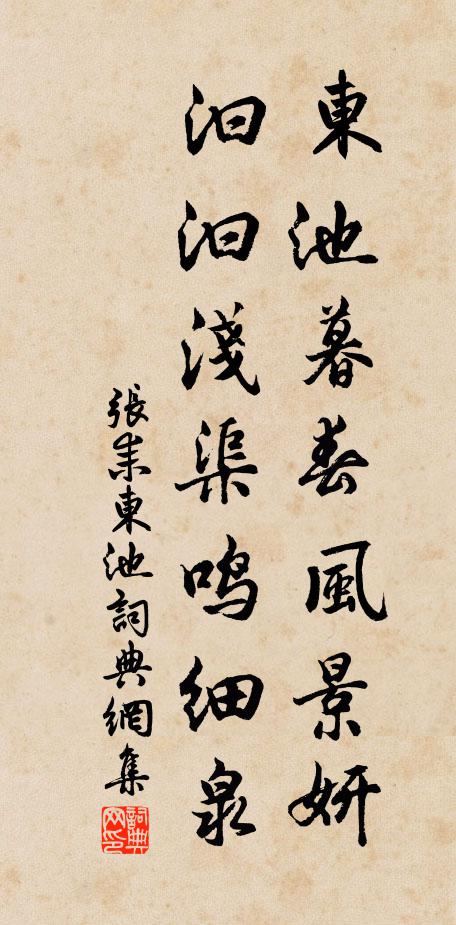 東池暮春風景妍
汩汩淺渠鳴細泉
張耒東池詞典網集
詞典网印